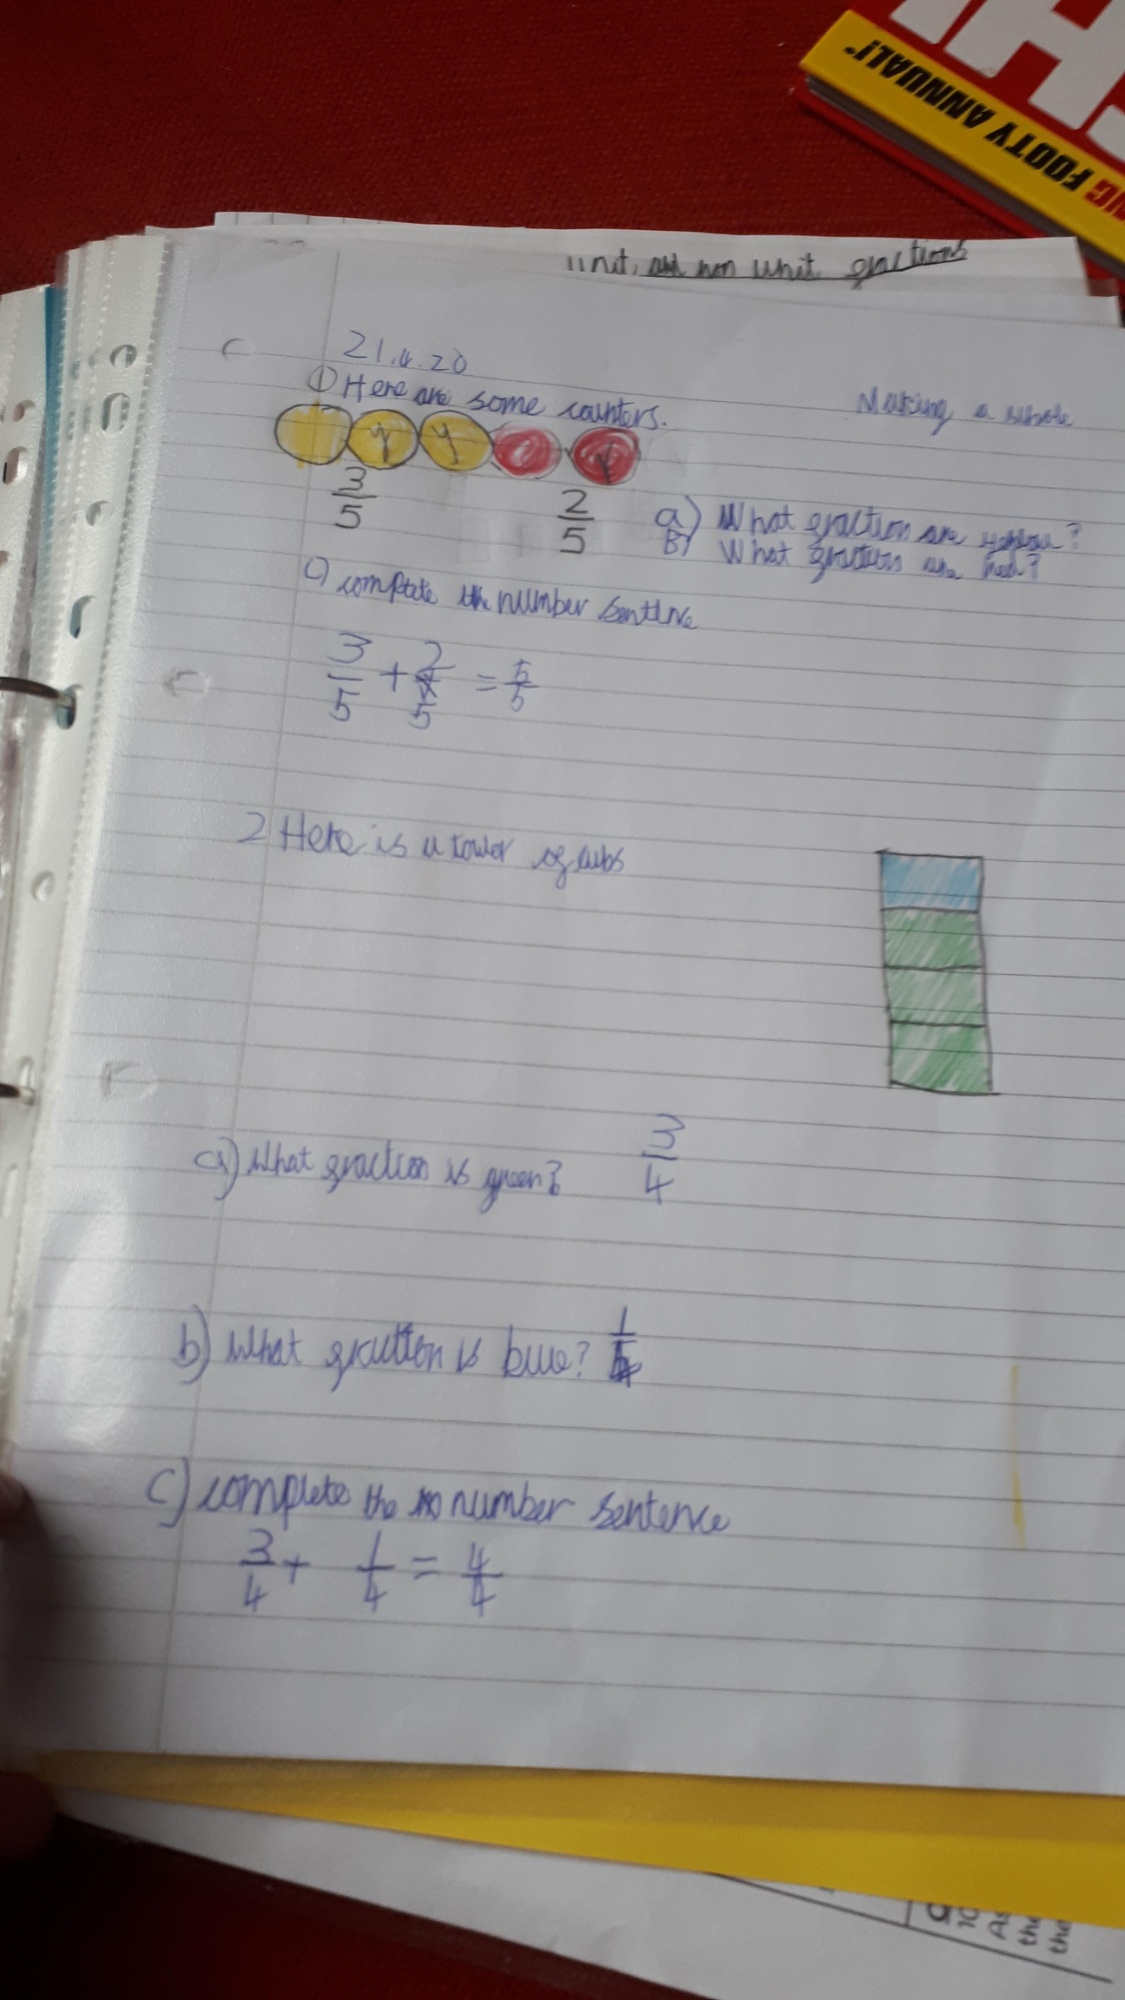 FOOTY ANNUAL!
unit, and non unit gractions
21.4.20
Making a whole
① Here are some counters.
y y
3/5 2/5
a) What graction are yellow?
B) What graction are Red?
c) complete the number sentence
3/5 + 2/5 = 5/5
2 Here is a tower of cubs
a) What graction is green? 3/4
b) What graction is blue? 1/4
c) complete the no number sentence
3/4 + 1/4 = 4/4
10
As
the
the